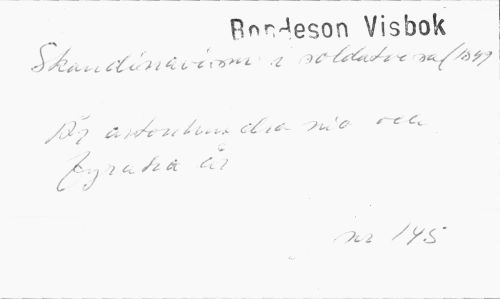 Bondeson Visbok
Skandinavism i soldatvisa (1849
År adertonhundra nio och
fyratio år
nr 145